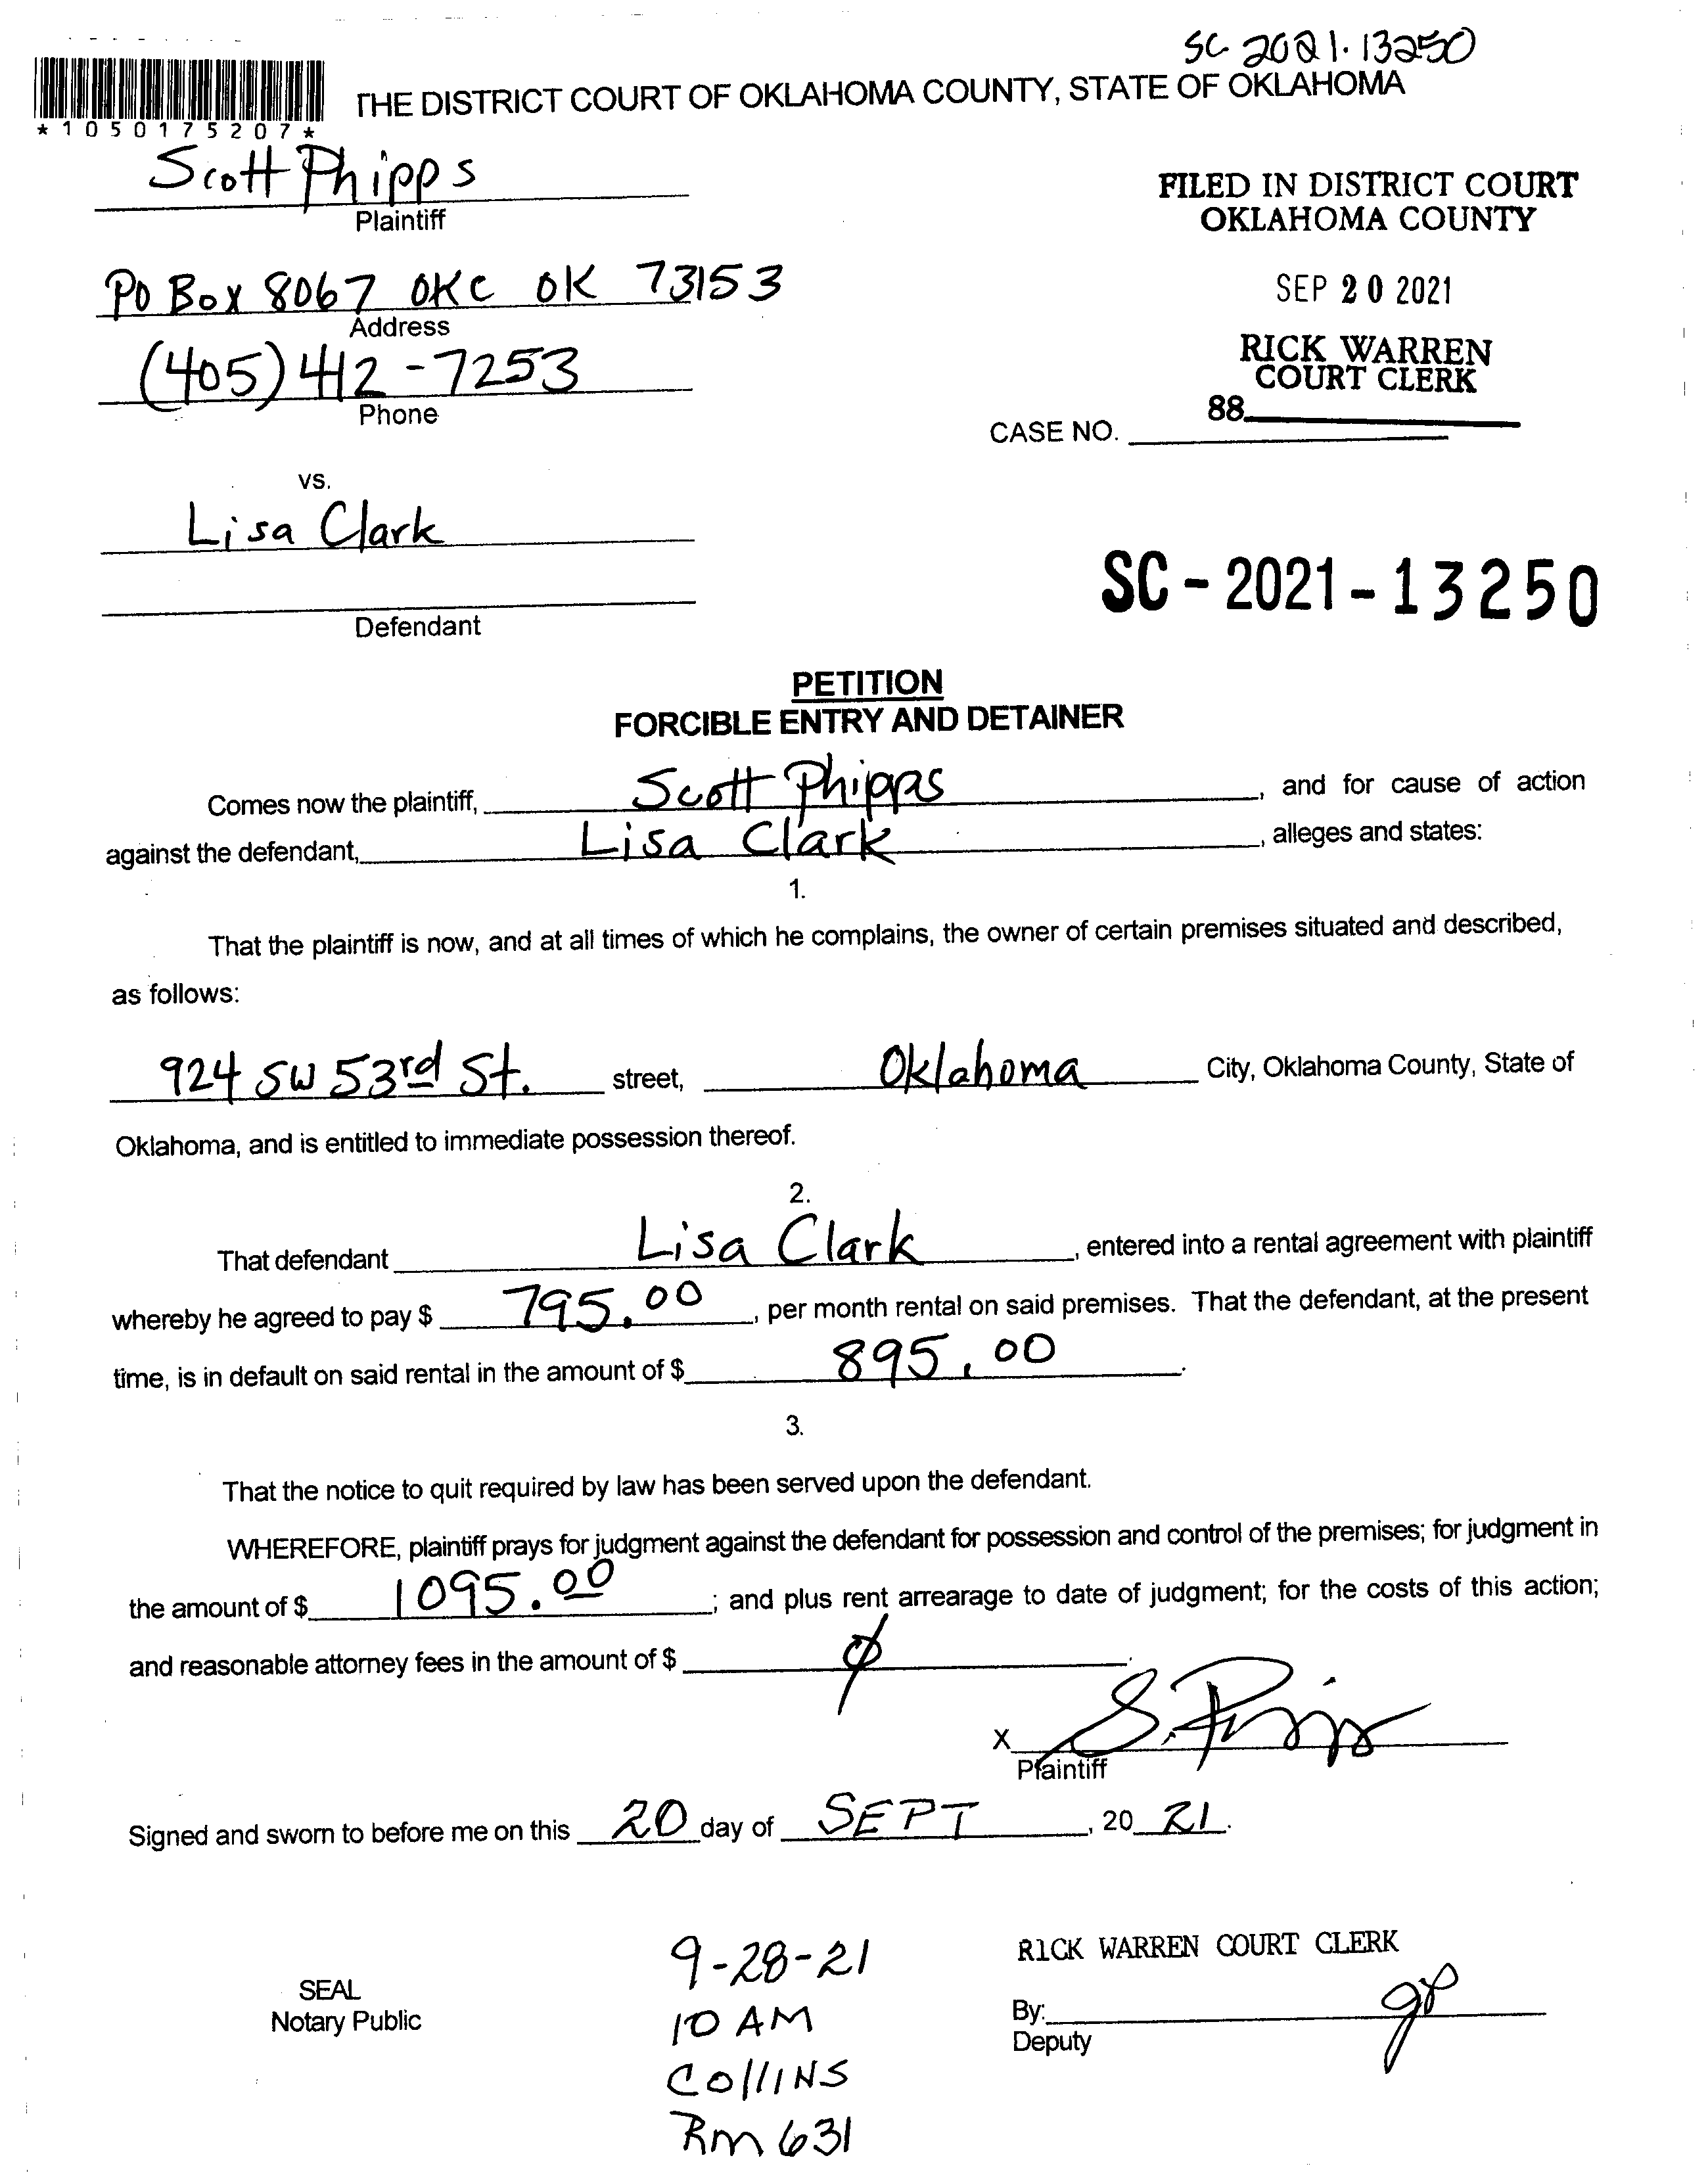 SC 2021-13250
*1050175207*
THE DISTRICT COURT OF OKLAHOMA COUNTY, STATE OF OKLAHOMA
Scott Phipps
Plaintiff
FILED IN DISTRICT COURT
OKLAHOMA COUNTY
PO Box 8067 OKC OK 73153
Address
SEP 20 2021
(405) 412-7253
Phone
RICK WARREN
COURT CLERK
88
CASE NO.
vs.
Lisa Clark
Defendant
SC-2021-13250
PETITION
FORCIBLE ENTRY AND DETAINER
Comes now the plaintiff, Scott Phipps, and for cause of action
against the defendant, Lisa Clark, alleges and states:
1.
That the plaintiff is now, and at all times of which he complains, the owner of certain premises situated and described,
as follows:
924 SW 53rd St. street, Oklahoma City, Oklahoma County, State of
Oklahoma, and is entitled to immediate possession thereof.
2.
That defendant Lisa Clark, entered into a rental agreement with plaintiff
whereby he agreed to pay $ 795.00, per month rental on said premises. That the defendant, at the present
time, is in default on said rental in the amount of $ 895.00.
3.
That the notice to quit required by law has been served upon the defendant.
WHEREFORE, plaintiff prays for judgment against the defendant for possession and control of the premises; for judgment in
the amount of $ 1095.00; and plus rent arrearage to date of judgment; for the costs of this action;
and reasonable attorney fees in the amount of $ ∅.
X S. Phipps
Plaintiff
Signed and sworn to before me on this 20 day of SEPT, 20 21.
SEAL
Notary Public
9-28-21
10 AM
COllINS
Rm 631
RICK WARREN COURT CLERK
By:
Deputy